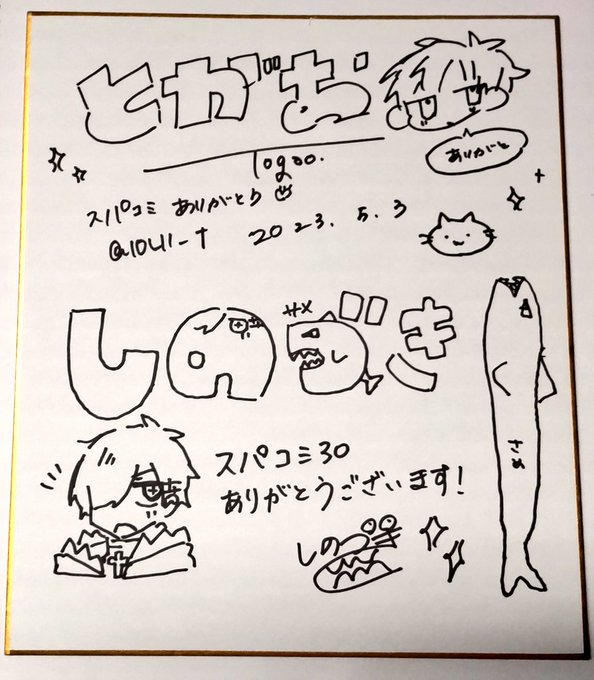 とがお
ありがと
togoo.
スパコミ ありがとう
@1041_t 2023.5.3
しのづき
サメ
スパコミ30
ありがとうございます!
しのづき
さめ